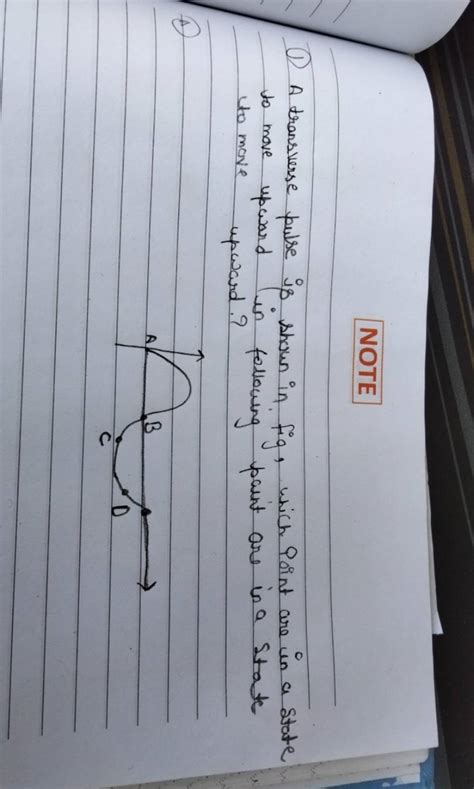 NOTE
① A transverse pulse is shown in fig, which Point are in a state
to move upward (in following point are in a state
to move upward.?
A
B
C
D